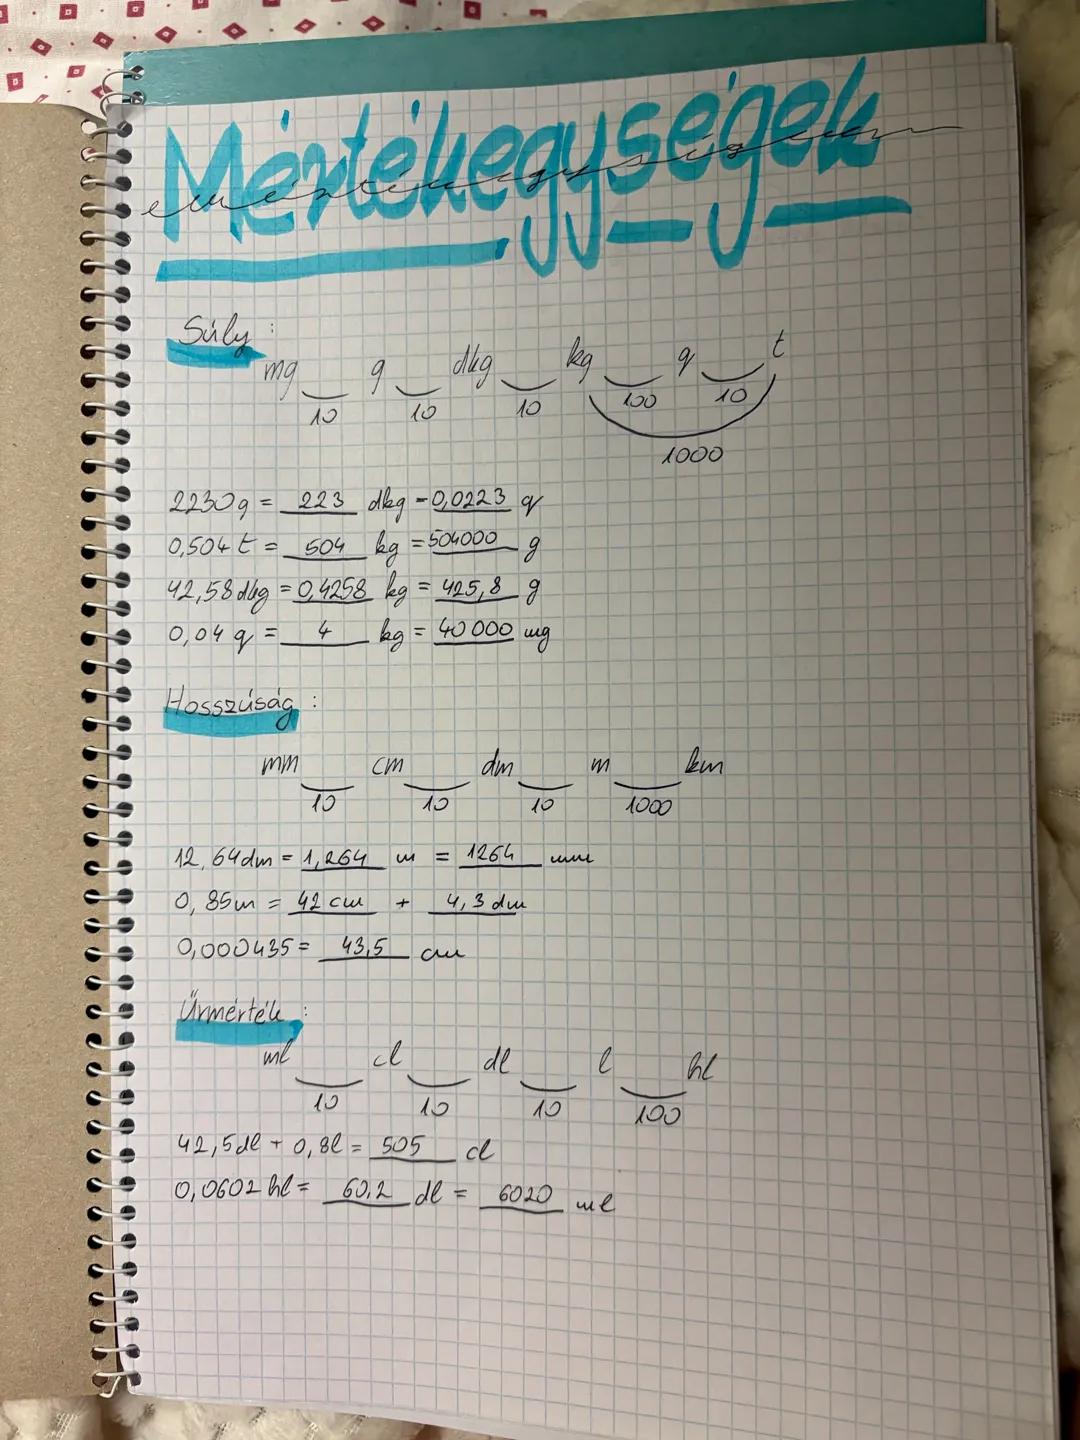 Mértékegységek
mértékegységek
Súly:
mg g dkg kg q t
10 10 10 100 10
1000
2230g = 223 dkg = 0,0223 q
0,504 t = 504 kg = 504000 g
42,58 dkg = 0,4258 kg = 425,8 g
0,04 q = 4 kg = 40 000 mg
Hosszúság:
mm cm dm m km
10 10 10 1000
12,64dm = 1,264 m = 1264 mm
0,85m = 42 cm + 4,3 dm
0,000435 = 43,5 cm
Űrmérték:
ml cl dl l hl
10 10 10 100
42,5dl + 0,8l = 505 cl
0,0602 hl = 60,2 dl = 6020 ml